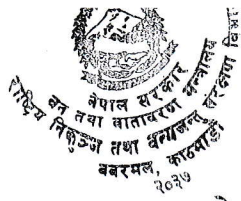 नेपाल सरकार
वन तथा वातावरण मन्त्रालय
राष्ट्रिय निकुञ्ज तथा वन्यजन्तु संरक्षण विभाग
बबरमहल, काठमाडौं
२०३७